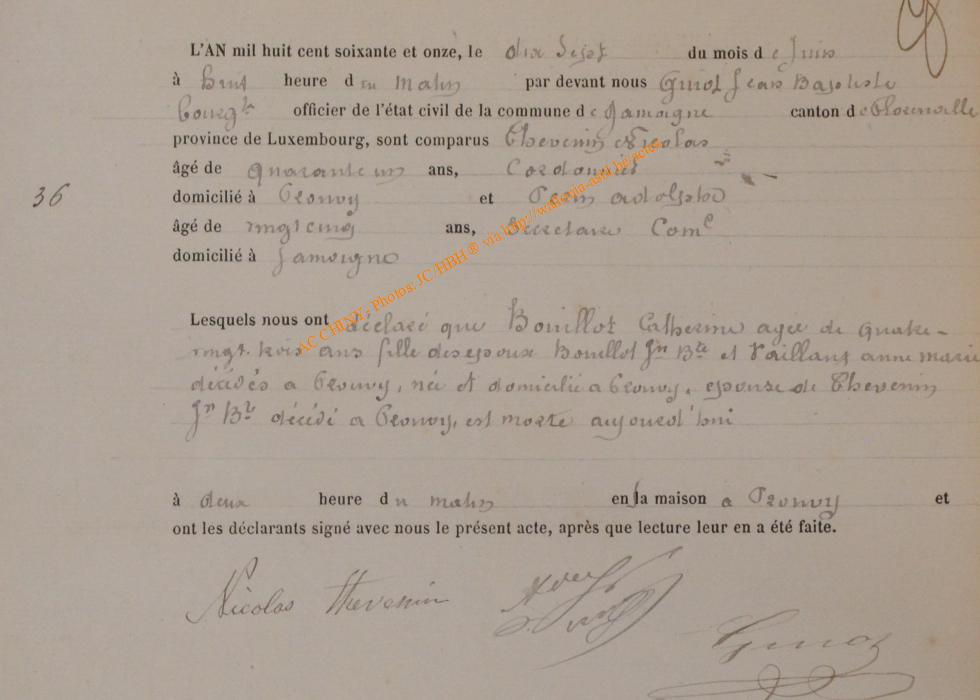 L'AN mil huit cent soixante et onze, le dix Sept du mois de Juin
à huit heure du matin par devant nous Guiot Jean Baptiste
Bourgtre officier de l'état civil de la commune de Jamoigne canton de Florenville
province de Luxembourg, sont comparus Thevenin Nicolas
âgé de quarante un ans, Cordonnier
36 domicilié à Pronvy et adolphe
âgé de vingt cinq ans, Secretaire Come
domicilié à Jamoigne
Lesquels nous ont déclaré que Bouillot Catherine agee de quatre-
vingt. trois ans fille des epoux Bouillot Jn Bte et Vaillant anne marie
décédés a Pronvy, née et domicilié a Pronvy, epouse de Thevenin
Jn Bte décédé a Pronvy, est morte aujourd'hui
à deux heure du matin en sa maison a Pronvy et
ont les déclarants signé avec nous le présent acte, après que lecture leur en a été faite.
Nicolas Thevenin
Guiot
AC CHINY, Photos: JC HBH ® via http://wallonia-asbl.be/actes